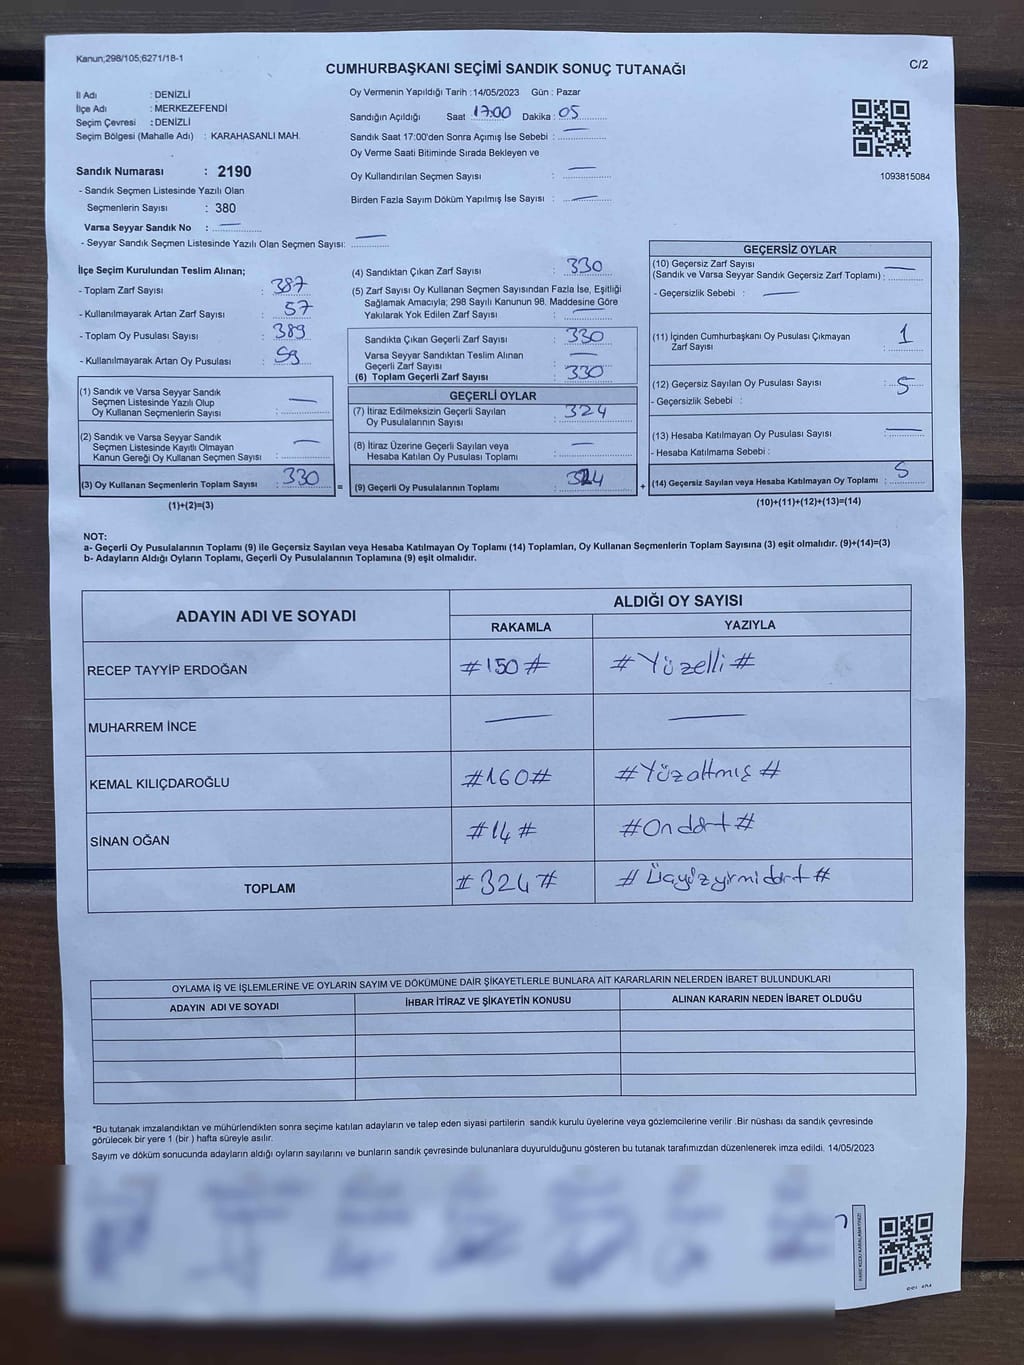 Kanun;298/105;6271/18-1
C/2
CUMHURBAŞKANI SEÇİMİ SANDIK SONUÇ TUTANAĞI
İl Adı : DENİZLİ
İlçe Adı : MERKEZEFENDİ
Seçim Çevresi : DENİZLİ
Seçim Bölgesi (Mahalle Adı) : KARAHASANLI MAH.
Sandık Numarası : 2190
- Sandık Seçmen Listesinde Yazılı Olan
Seçmenlerin Sayısı : 380
Varsa Seyyar Sandık No : —
- Seyyar Sandık Seçmen Listesinde Yazılı Olan Seçmen Sayısı: —
Oy Vermenin Yapıldığı Tarih :14/05/2023 Gün : Pazar
Sandığın Açıldığı Saat 17:00 Dakika : 05
Sandık Saat 17:00'den Sonra Açımış İse Sebebi : —
Oy Verme Saati Bitiminde Sırada Bekleyen ve
Oy Kullandırılan Seçmen Sayısı : —
Birden Fazla Sayım Döküm Yapılmış İse Sayısı : —
1093815084
İlçe Seçim Kurulundan Teslim Alınan;
- Toplam Zarf Sayısı : 387
- Kullanılmayarak Artan Zarf Sayısı : 57
- Toplam Oy Pusulası Sayısı : 389
- Kullanılmayarak Artan Oy Pusulası : 59
(1) Sandık ve Varsa Seyyar Sandık
Seçmen Listesinde Yazılı Olup
Oy Kullanan Seçmenlerin Sayısı : —
(2) Sandık ve Varsa Seyyar Sandık
Seçmen Listesinde Kayıtlı Olmayan
Kanun Gereği Oy Kullanan Seçmen Sayısı : —
(3) Oy Kullanan Seçmenlerin Toplam Sayısı : 330
(1)+(2)=(3)
=
(4) Sandıktan Çıkan Zarf Sayısı : 330
(5) Zarf Sayısı Oy Kullanan Seçmen Sayısından Fazla İse, Eşitliği
Sağlamak Amacıyla; 298 Sayılı Kanunun 98. Maddesine Göre
Yakılarak Yok Edilen Zarf Sayısı : —
Sandıkta Çıkan Geçerli Zarf Sayısı : 330
Varsa Seyyar Sandıktan Teslim Alınan
Geçerli Zarf Sayısı : —
(6) Toplam Geçerli Zarf Sayısı : 330
GEÇERLİ OYLAR
(7) İtiraz Edilmeksizin Geçerli Sayılan
Oy Pusulalarının Sayısı : 324
(8) İtiraz Üzerine Geçerli Sayılan veya
Hesaba Katılan Oy Pusulası Toplamı : —
(9) Geçerli Oy Pusulalarının Toplamı : 324
+
GEÇERSİZ OYLAR
(10) Geçersiz Zarf Sayısı
(Sandık ve Varsa Seyyar Sandık Geçersiz Zarf Toplamı) : —
- Geçersizlik Sebebi : —
(11) İçinden Cumhurbaşkanı Oy Pusulası Çıkmayan
Zarf Sayısı : 1
(12) Geçersiz Sayılan Oy Pusulası Sayısı : 5
- Geçersizlik Sebebi :
(13) Hesaba Katılmayan Oy Pusulası Sayısı : —
- Hesaba Katılmama Sebebi :
(14) Geçersiz Sayılan veya Hesaba Katılmayan Oy Toplamı : 5
(10)+(11)+(12)+(13)=(14)
NOT:
a- Geçerli Oy Pusulalarının Toplamı (9) ile Geçersiz Sayılan veya Hesaba Katılmayan Oy Toplamı (14) Toplamları, Oy Kullanan Seçmenlerin Toplam Sayısına (3) eşit olmalıdır. (9)+(14)=(3)
b- Adayların Aldığı Oyların Toplamı, Geçerli Oy Pusulalarının Toplamına (9) eşit olmalıdır.
ADAYIN ADI VE SOYADI
ALDIĞI OY SAYISI
RAKAMLA YAZIYLA
RECEP TAYYİP ERDOĞAN #150# #Yüzelli#
MUHARREM İNCE — —
KEMAL KILIÇDAROĞLU #160# #Yüzaltmış#
SİNAN OĞAN #14# #Ondört#
TOPLAM #324# #Üçyüzyirmidört#
OYLAMA İŞ VE İŞLEMLERİNE VE OYLARIN SAYIM VE DÖKÜMÜNE DAİR ŞİKAYETLERLE BUNLARA AİT KARARLARIN NELERDEN İBARET BULUNDUKLARI
ADAYIN ADI VE SOYADI İHBAR İTİRAZ VE ŞİKAYETİN KONUSU ALINAN KARARIN NEDEN İBARET OLDUĞU
*Bu tutanak imzalandıktan ve mühürlendikten sonra seçime katılan adayların ve talep eden siyasi partilerin sandık kurulu üyelerine veya gözlemcilerine verilir .Bir nüshası da sandık çevresinde
görülecek bir yere 1 (bir ) hafta süreyle asılır.
Sayım ve döküm sonucunda adayların aldığı oyların sayılarını ve bunların sandık çevresinde bulunanlara duyurulduğunu gösteren bu tutanak tarafımızdan düzenlenerek imza edildi. 14/05/2023